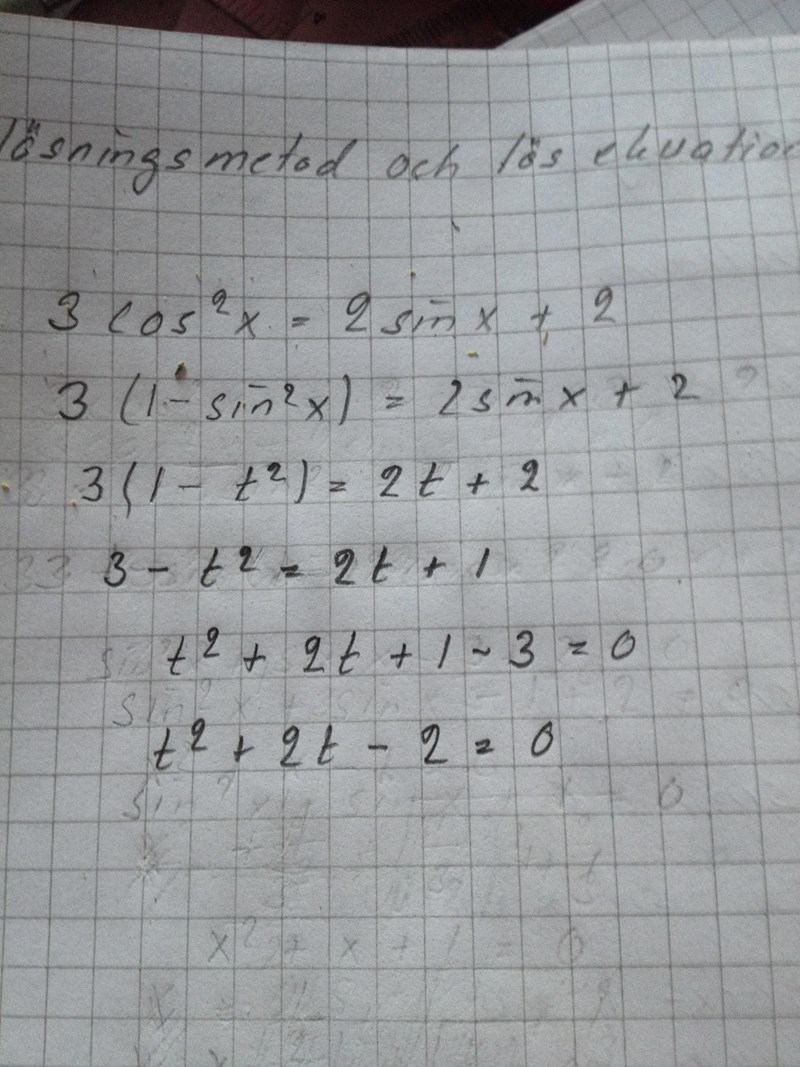 lösningsmetod och lös ekvation
3 cos²x = 2 sin x + 2
3 (1 - sin²x) = 2 sin x + 2
3(1 - t²) = 2t + 2
3 - t² = 2t + 1
t² + 2t + 1 - 3 = 0
t² + 2t - 2 = 0
x² + x + 1 = 0